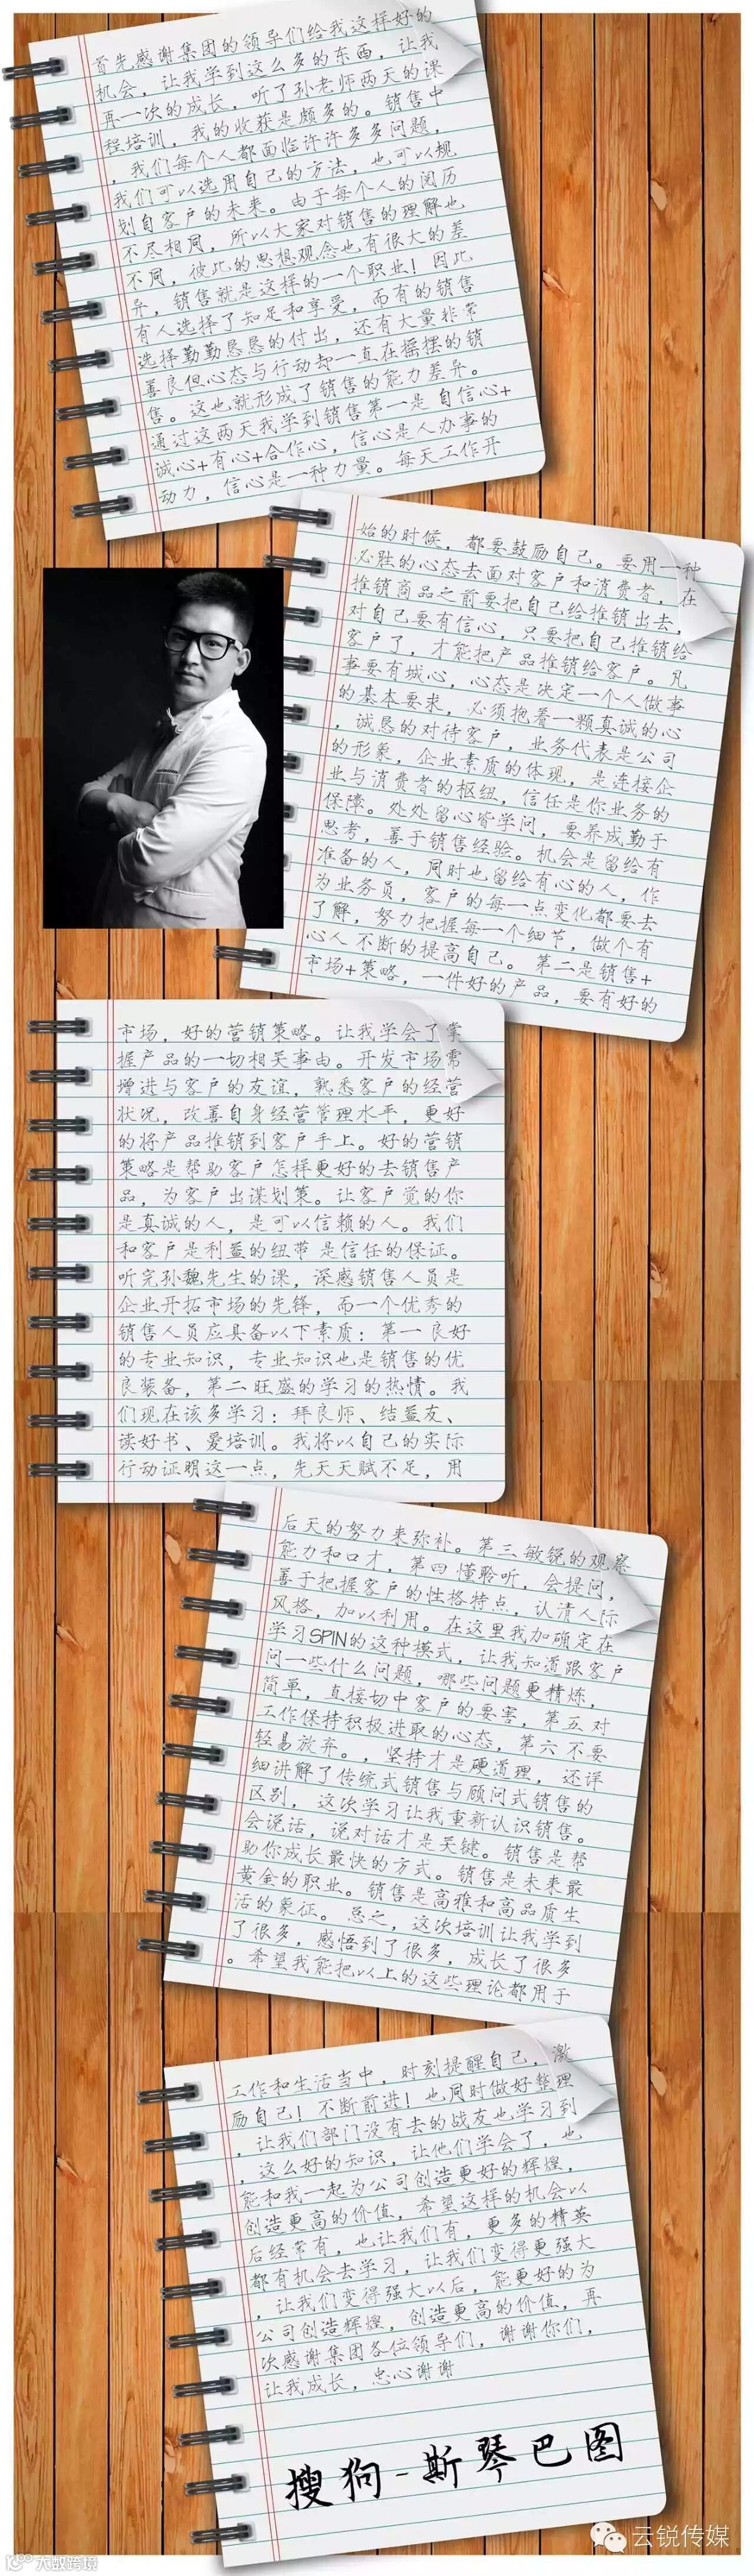 首先感谢集团的领导们给我这样好的
机会，让我学到这么多的东西，让我
再一次的成长，听了孙老师两天的课
程培训，我的收获是颇多的。销售中
，我们每个人都面临许许多多问题，
我们可以选用自己的方法，也可以规
划自客户的未来。由于每个人的阅历
不尽相同，所以大家对销售的理解也
不同，彼此的思想观念也有很大的差
异，销售就是这样的一个职业！因此
有人选择了知足和享受，而有的销售
选择勤勤恳恳的付出，还有大量非常
善良但心态与行动却一直在摇摆的销
售。这也就形成了销售的能力差异。
通过这两天我学到销售第一是 自信心+
诚心+有心+合作心，信心是人办事的
动力，信心是一种力量。每天工作开
始的时候，都要鼓励自己。要用一种
必胜的心态去面对客户和消费者，在
推销商品之前要把自己给推销出去，
对自己要有信心，只要把自己推销给
客户了，才能把产品推销给客户。凡
事要有城心，心态是决定一个人做事
的基本要求，必须抱着一颗真诚的心
，诚恳的对待客户，业务代表是公司
的形象，企业素质的体现，是连接企
业与消费者的枢纽，信任是你业务的
保障。处处留心皆学问，要养成勤于
思考，善于销售经验。机会是留给有
准备的人，同时也留给有心的人，作
为业务员，客户的每一点变化都要去
了解，努力把握每一个细节，做个有
心人 不断的提高自己。 第二是销售+
市场+策略，一件好的产品，要有好的
市场，好的营销策略。让我学会了掌
握产品的一切相关事由。开发市场需
增进与客户的友谊，熟悉客户的经营
状况，改善自身经营管理水平，更好
的将产品推销到客户手上。好的营销
策略是帮助客户怎样更好的去销售产
品，为客户出谋划策。让客户觉的你
是真诚的人，是可以信赖的人。我们
和客户是利益的纽带 是信任的保证。
听完孙魏先生的课，深感销售人员是
企业开拓市场的先锋，而一个优秀的
销售人员应具备以下素质：第一 良好
的专业知识，专业知识也是销售的优
良装备，第二 旺盛的学习的热情。我
们现在该多学习：拜良师、结益友、
读好书、爱培训。我将以自己的实际
行动证明这一点，先天天赋不足，用
后天的努力来弥补。第三 敏锐的观察
能力和口才，第四 懂聆听，会提问，
善于把握客户的性格特点，认清人际
风格，加以利用。在这里我加确定在
学习SPIN的这种模式，让我知道跟客户
问一些什么问题，哪些问题更精炼，
简单，直接切中客户的要害，第五 对
工作保持积极进取的心态，第六 不要
轻易放弃。，坚持才是硬道理，还详
细讲解了传统式销售与顾问式销售的
区别，这次学习让我重新认识销售。
会说话，说对话才是关键。销售是帮
助你成长最快的方式。销售是未来最
黄金的职业。销售是高雅和高品质生
活的象征。总之，这次培训让我学到
了很多，感悟到了很多，成长了很多
。希望我能把以上的这些理论都用于
工作和生活当中，时刻提醒自己，激
励自己！不断前进！也同时做好整理
，让我们部门没有去的战友也学习到
，这么好的知识，让他们学会了，也
能和我一起为公司创造更好的辉煌，
创造更高的价值，希望这样的机会以
后经常有，也让我们有，更多的精英
都有机会去学习，让我们变得更强大
，让我们变得强大以后，能更好的为
公司创造辉煌，创造更高的价值，再
次感谢集团各位领导们，谢谢你们，
让我成长，忠心谢谢
搜狗-斯琴巴图
云锐传媒
大数跨境